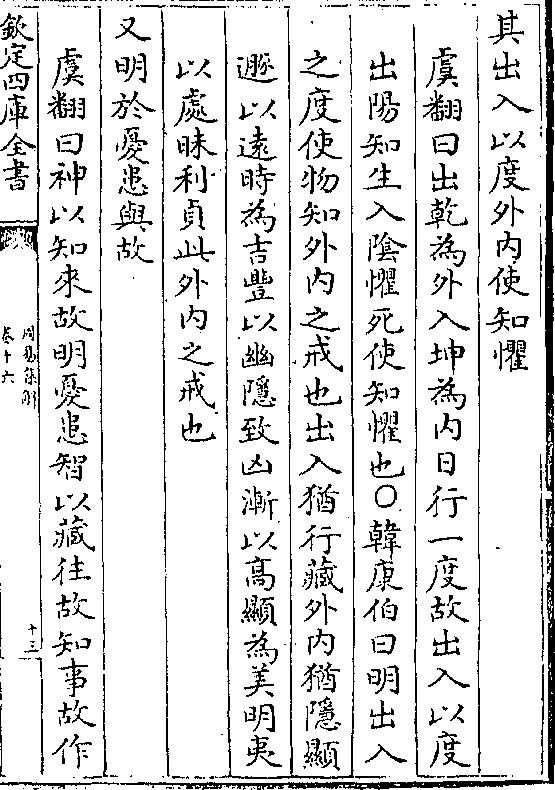 其出入以度外内使知懼
虞翻曰出乾為外入坤為内日行一度故出入以度
出陽知生入陰懼死使知懼也○韓康伯曰明出入
之度使物知外内之戒也出入猶行藏外内猶隱顯
遯以遠時為吉豐以幽隱致凶漸以高顯為美明夷
以處昧利貞此外内之戒也
又明於憂患與故
虞翻曰神以知來故明憂患智以藏往故知事故作
欽定四庫全書
周易集解
卷十六
十三